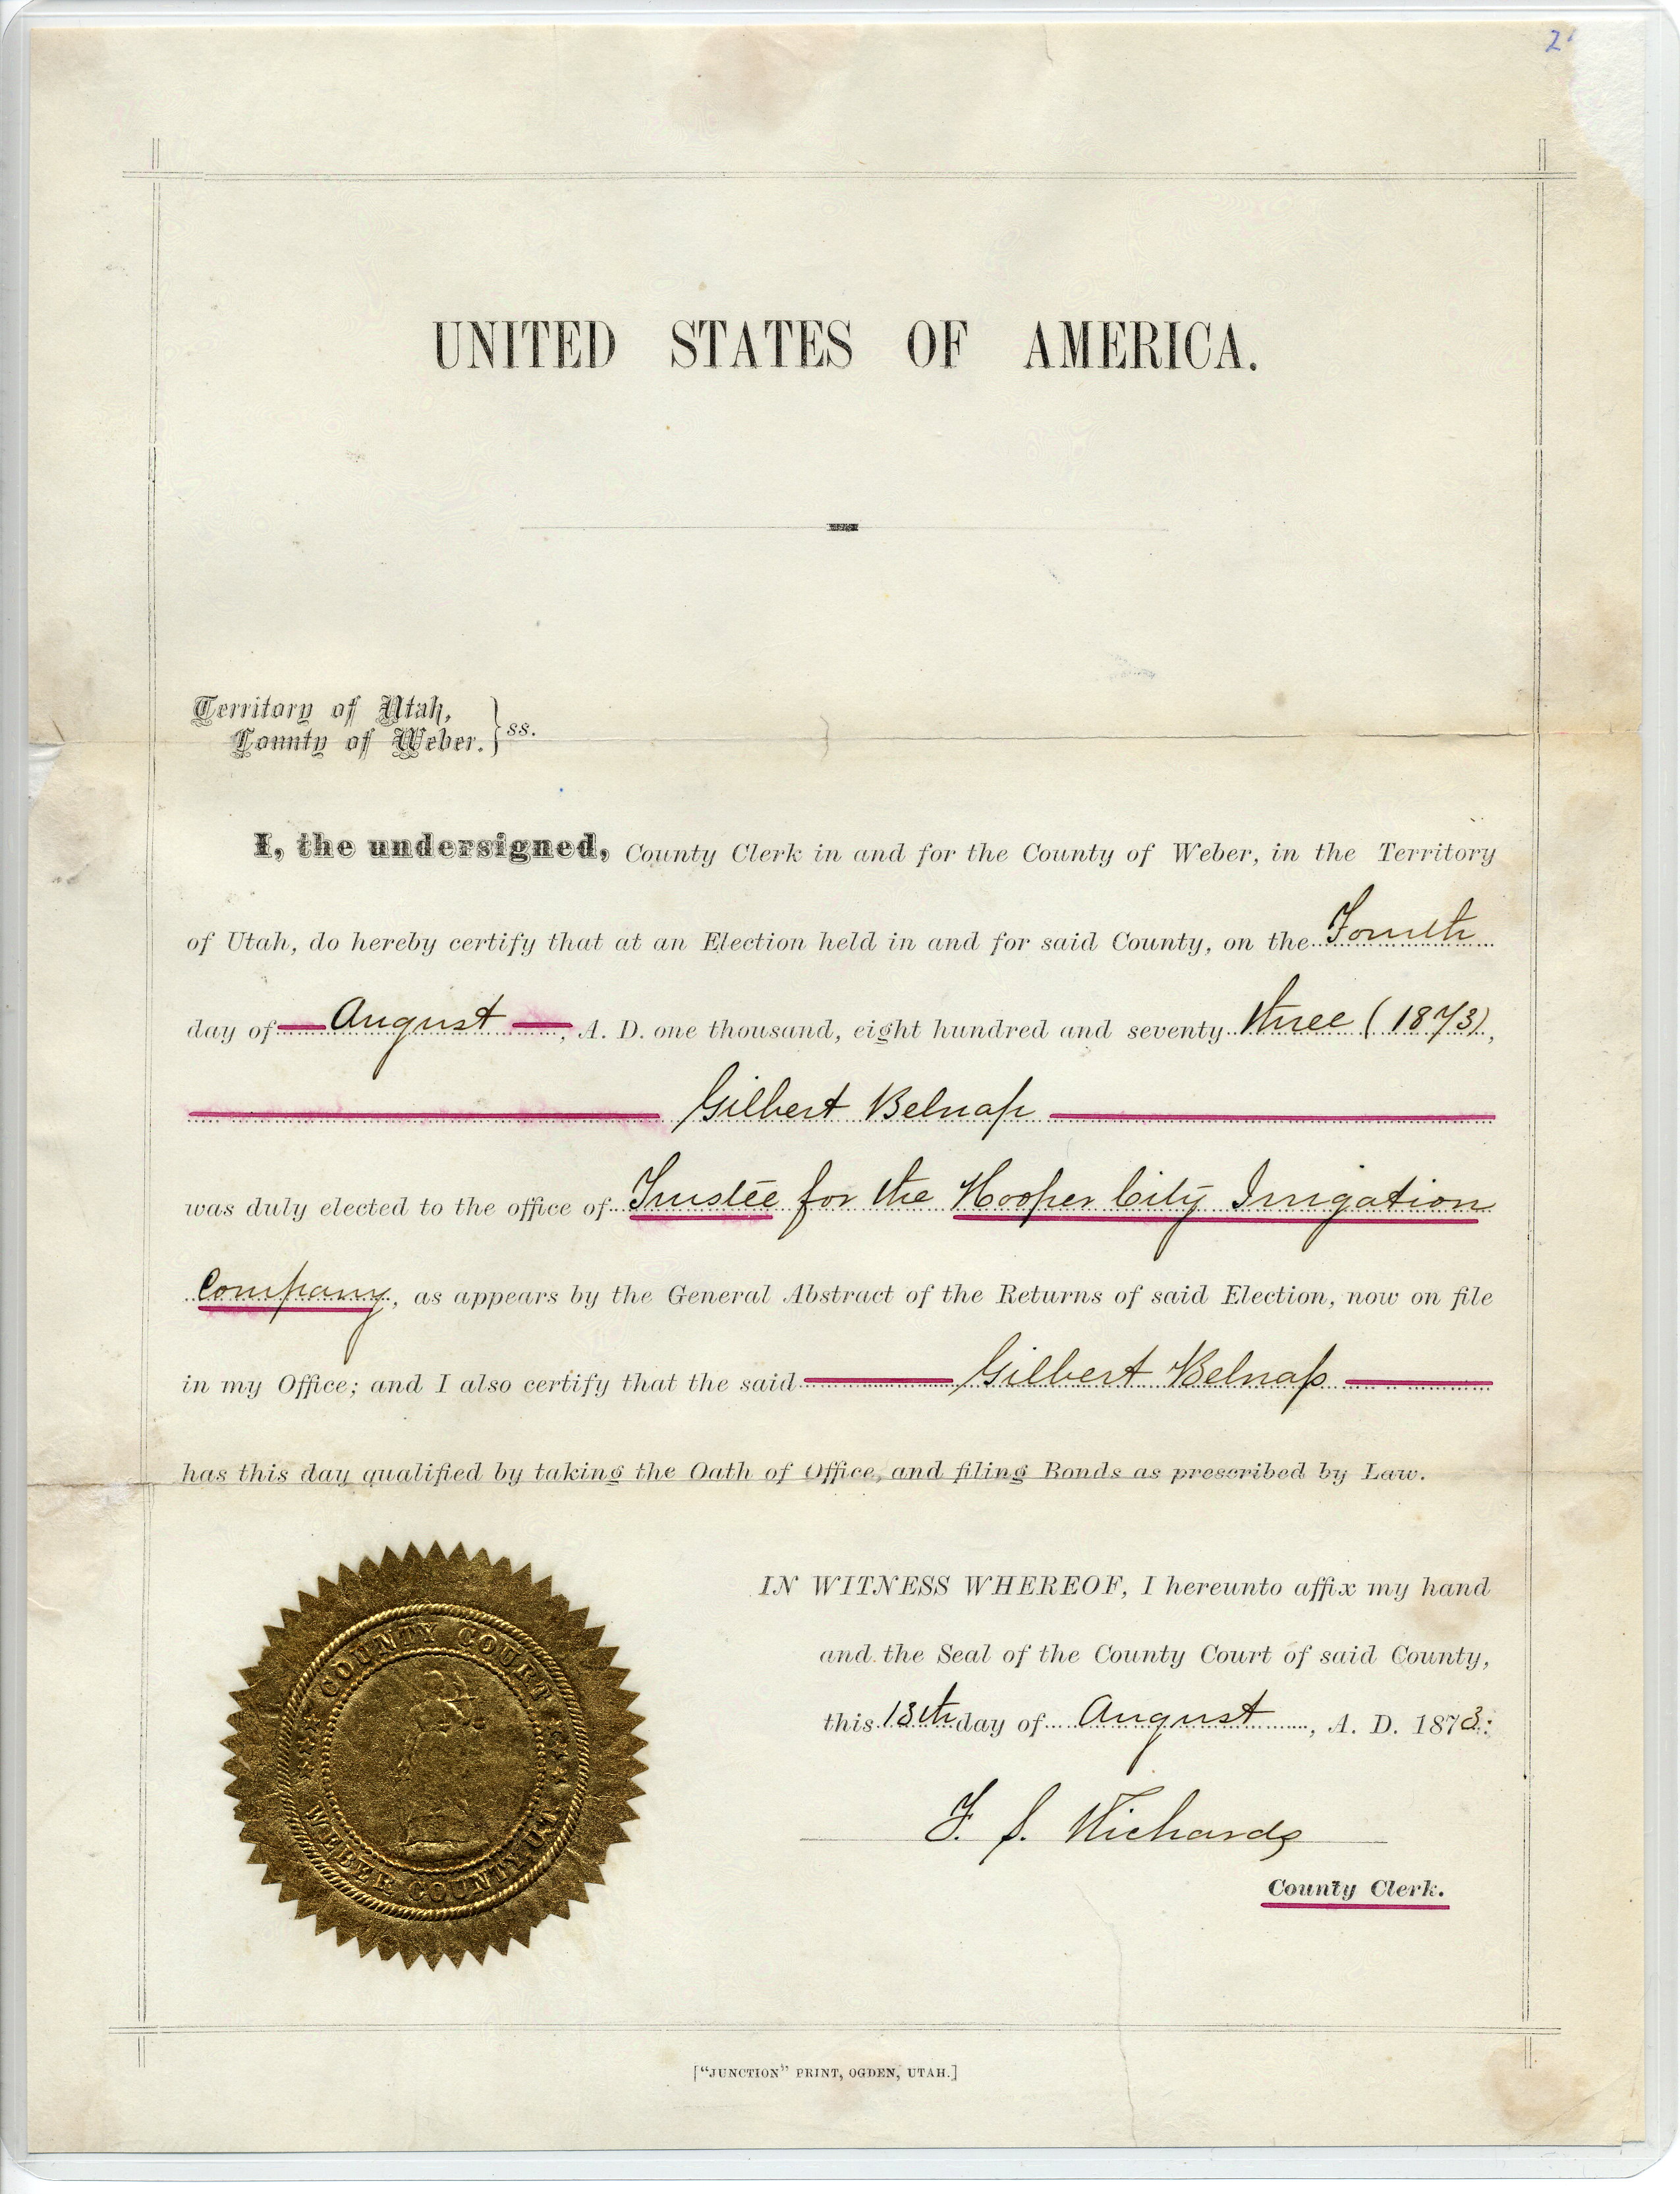 2
UNITED STATES OF AMERICA.
Territory of Utah,
County of Weber. } ss.
I, the undersigned, County Clerk in and for the County of Weber, in the Territory
of Utah, do hereby certify that at an Election held in and for said County, on the Fourth
day of August, A. D. one thousand, eight hundred and seventy three (1873),
Gilbert Belnap
was duly elected to the office of Trustee for the Hooper City Irrigation
Company, as appears by the General Abstract of the Returns of said Election, now on file
in my Office; and I also certify that the said Gilbert Belnap
has this day qualified by taking the Oath of Office, and filing Bonds as prescribed by Law.
IN WITNESS WHEREOF, I hereunto affix my hand
and the Seal of the County Court of said County,
this 13th day of August, A. D. 1873.
F. S. Richards
County Clerk.
COUNTY COURT
WEBER COUNTY U.T.
["JUNCTION" PRINT, OGDEN, UTAH.]